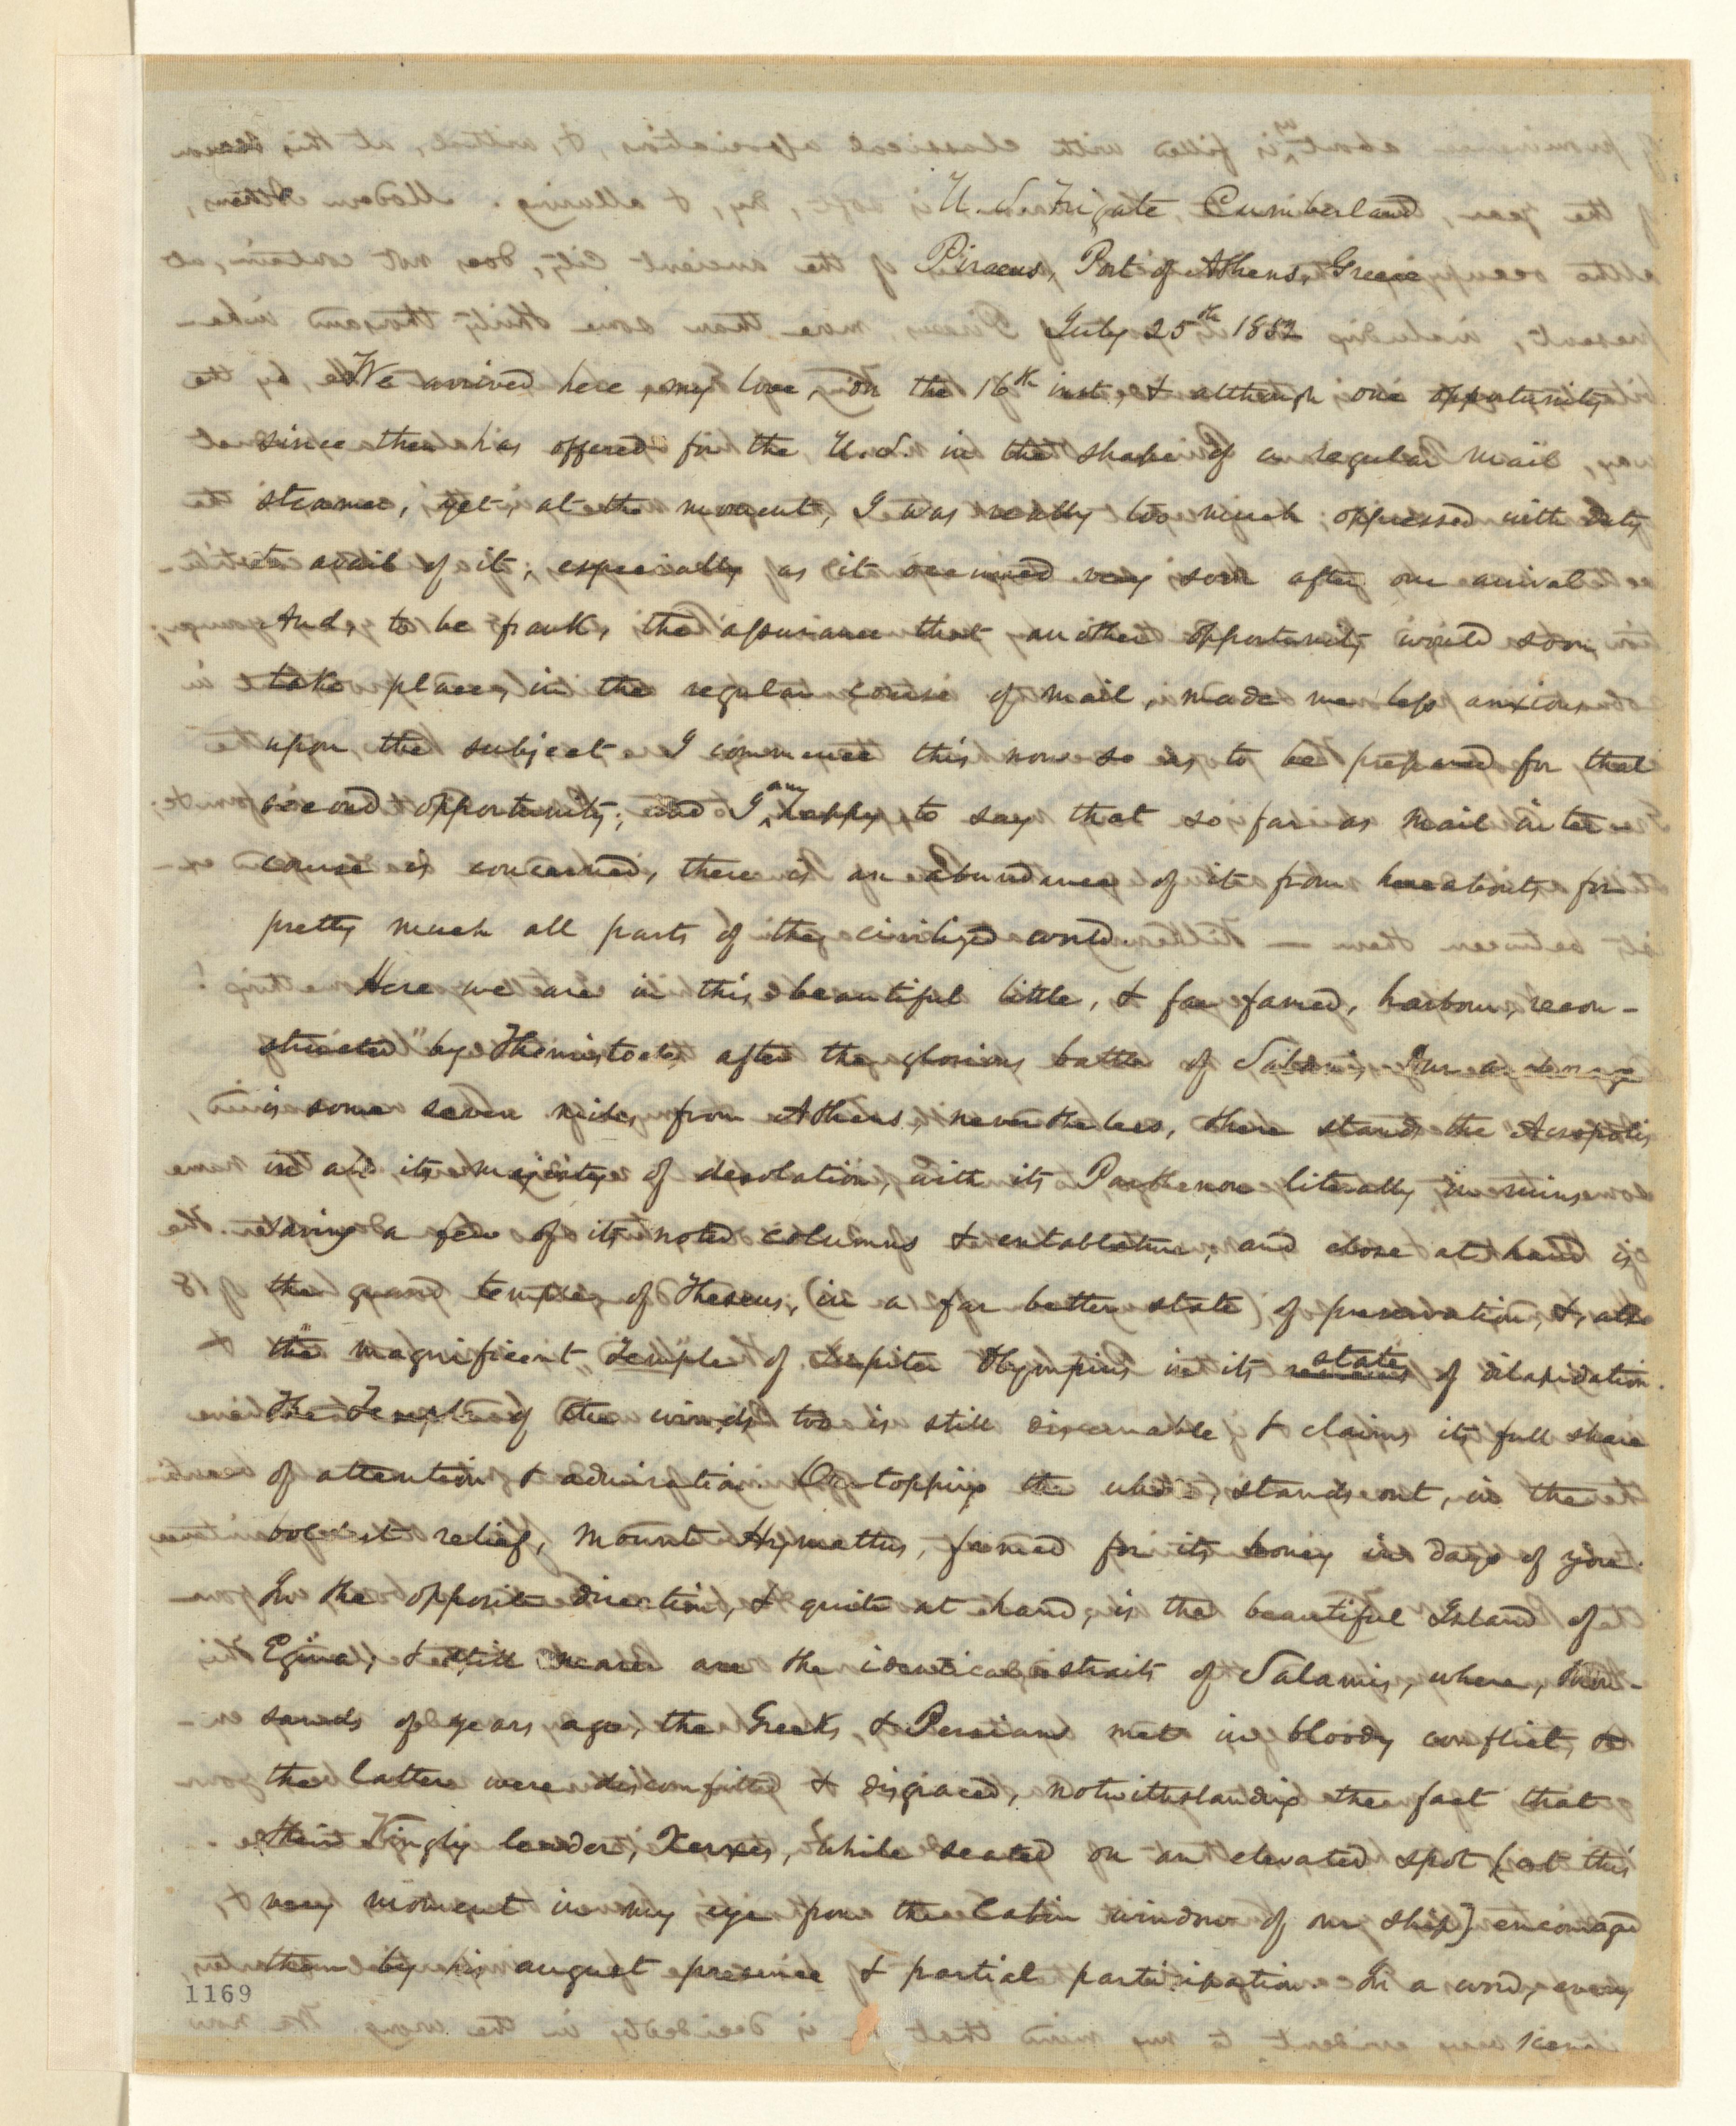 U. S. Frigate Cumberland
Piraeus, Port of Athens, Greece
July 25th 1852
We arrived here, my love, on the 16th inst, & although one opportunity
since then has offered for the U.S. in the shape of a regular mail
steamer, yet, at the moment, I was really too much oppressed with duty
to avail of it; especially as it occurred very soon after our arrival
And, to be frank, the assurance that another opportunity would soon
take place, in the regular course of mail, made me less anxious
upon the subject. I commence this now so as to be prepared for that
second opportunity; and I am happy to say that so far as mail inter
course is concerned, there is an abundance of it from hereabouts, for
pretty much all parts of the civilized world.
Here we are in this beautiful little, & far famed, harbour, recon-
structed by Themistocles after the glorious battle of Salamis, Our anchorage
is some seven miles from Athens, nevertheless, there stands the Acropolis
in all its majesty of desolation, with its Parthenon literally in ruins
saving a few of its noted columns & entablature, and close at hand is
the grand temple of Theseus, (in a far better state) of preservation, & also
the magnificent Temple of Jupiter Olympius in its state of dilapidation.
The Temple of the winds too is still discernable & claims its full share
of attention & admiration. Overtopping the whole, stands out, in the
boldest relief, Mount Hymettus, famed for its honey in days of yore.
In the opposite direction, & quite at hand, is the beautiful Island of
Egina, & still nearer are the identical straits of Salamis, where, thou-
sands of years ago, the Greeks & Persians met in bloody conflict, &
the latter were discomfitted & disgraced, notwithstanding the fact that
their Kingly leader, Xerxes, while seated on an elevated spot (at this
very moment in my eye from the Cabin window of our ship) encouraged
them by his august presence & partial participation. In a word, every
1169